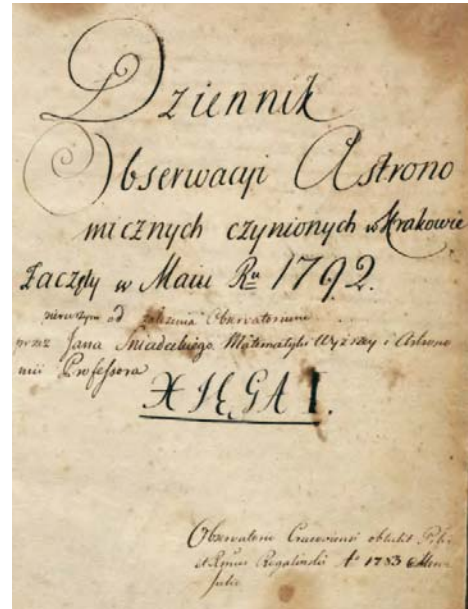 Dziennik
Obserwacyi Astrono
micznych czynionych w Krakowie
Zaczęty w Maiu Ru 1792.
pierwszym od założenia Obserwatorium
przez Jana Sniadeckiego Matematyki Wyższey i Astrono
mii Professora
XIĘGA I.
Observatorio Cracoviensi obtulit
Rogaliński Ao 1783
Julio